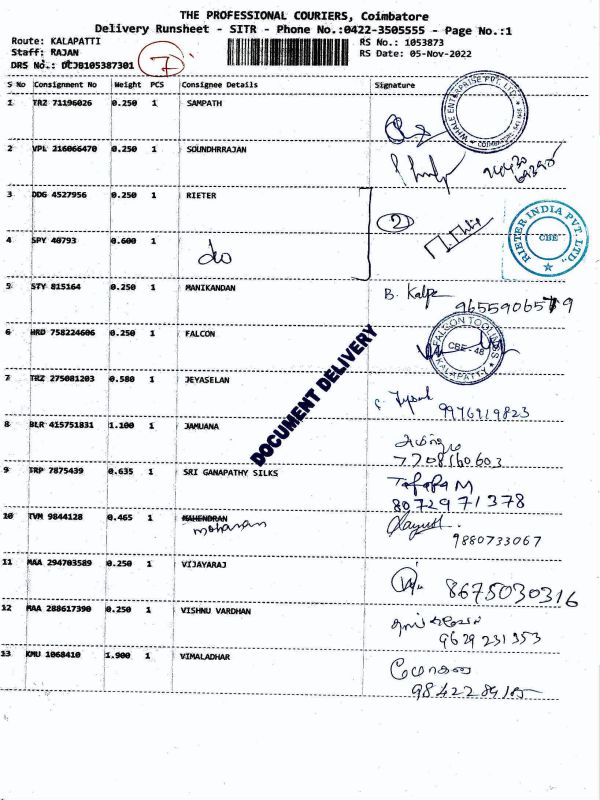 THE PROFESSIONAL COURIERS, Coimbatore
Delivery Runsheet - SITR - Phone No.:0422-3505555 - Page No.:1
Route: KALAPATTI RS No.: 1053873
Staff: RAJAN RS Date: 05-Nov-2022
DRS No.: DCJB105387301 7
S No Consignment No Weight PCS Consignee Details Signature
1 TRZ 71196026 0.250 1 SAMPATH
2 VPL 216066470 0.250 1 SOUNDHRRAJAN
3 DDG 4527956 0.250 1 RIETER 2
RIETER INDIA PVT. LTD., CBE
4 SPY 40793 0.600 1 do
5 STY 815164 0.250 1 MANIKANDAN B. Kalpa
6 HRD 758224606 0.250 1 FALCON FALCON TOOLINGS CBE - 48 KALAPATTY
DOCUMENT DELIVERY
7 TRZ 275081203 0.580 1 JEYASELAN 9976919823
8 BLR 415751831 1.100 1 JAMUANA
7708160603
9 TRP 7875439 0.635 1 SRI GANAPATHY SILKS
8072971378
10 TVM 9844128 0.465 1 MAHENDRAN
mohanan
9880733067
11 MAA 294703589 0.250 1 VIJAYARAJ 8675030316
12 MAA 288617390 0.250 1 VISHNU VARDHAN
9629231353
13 KMU 1068410 1.900 1 VIMALADHAR